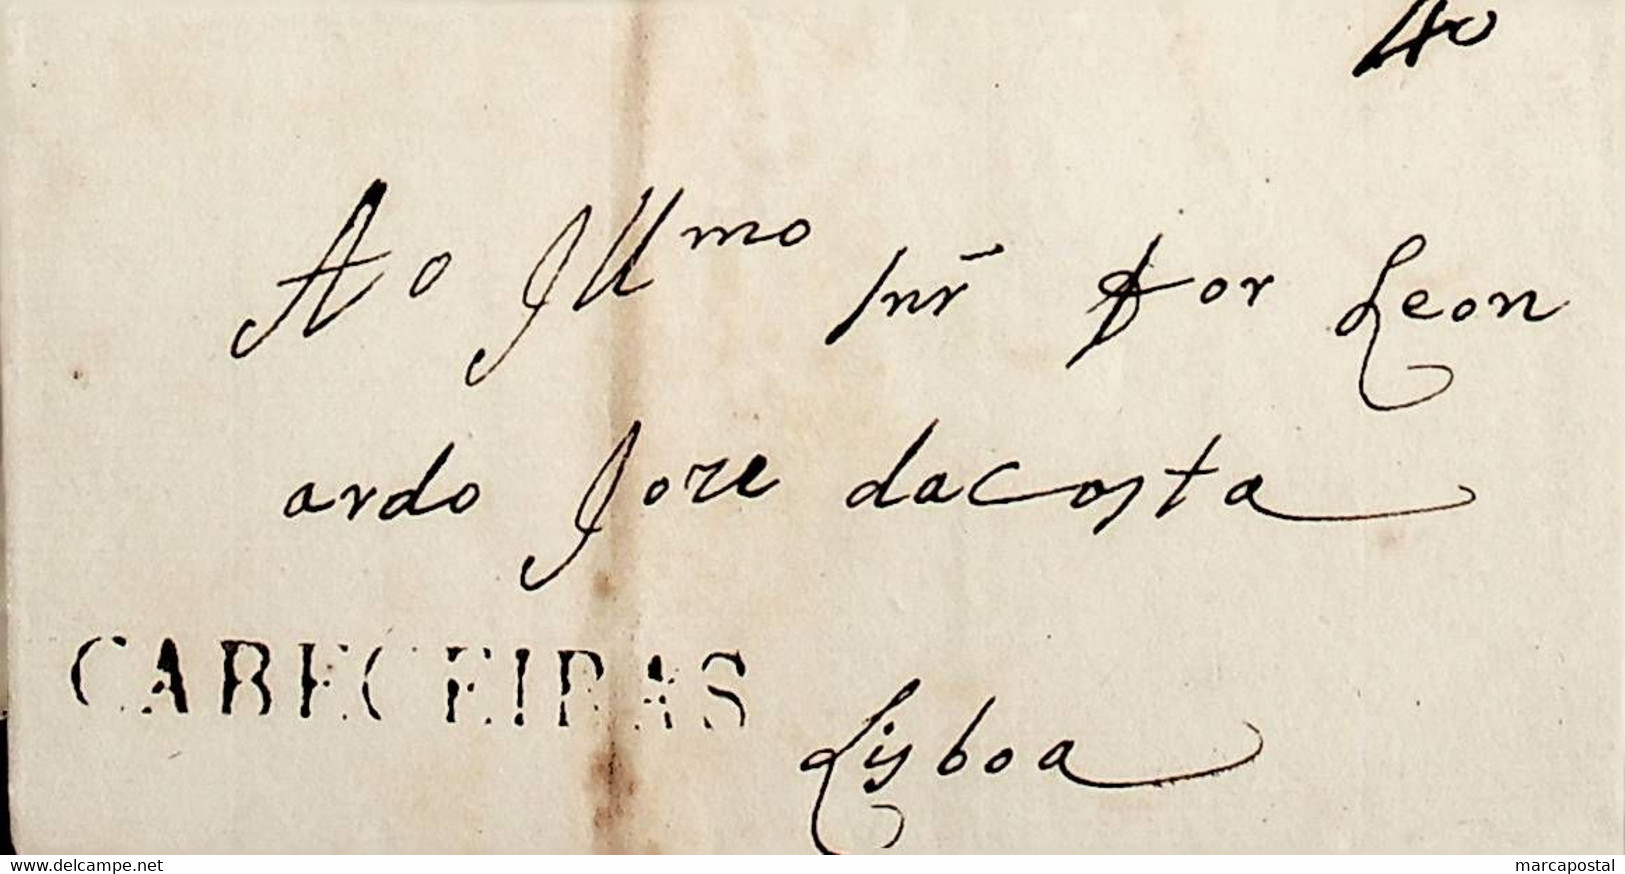 40
Ao Illmo Snr Dor Leon
ardo Joze dacosta
CABECEIRAS
Lisboa
www.delcampe.net
marcapostal